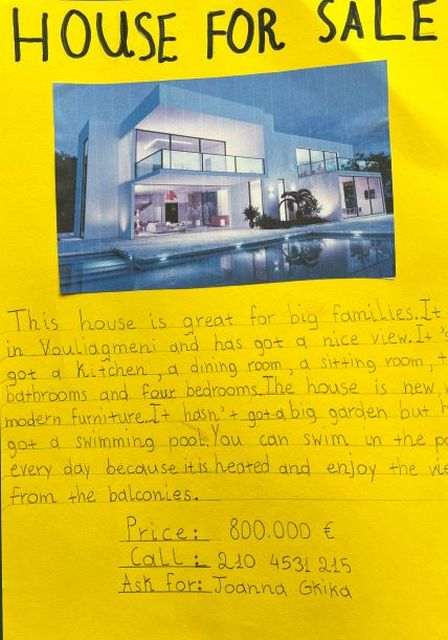 HOUSE FOR SALE
This house is great for big families.It
in Vouliagmeni and has got a nice view.It's
got a kitchen, a dining room, a sitting room,
bathrooms and four bedrooms.The house is new,
modern furniture.It hasn't got a big garden but
got a swimming pool.You can swim in the
every day because it is heated and enjoy the
from the balconies.
Price: 800.000 €
Call: 210 4531 215
Ask for: Joanna Gkika